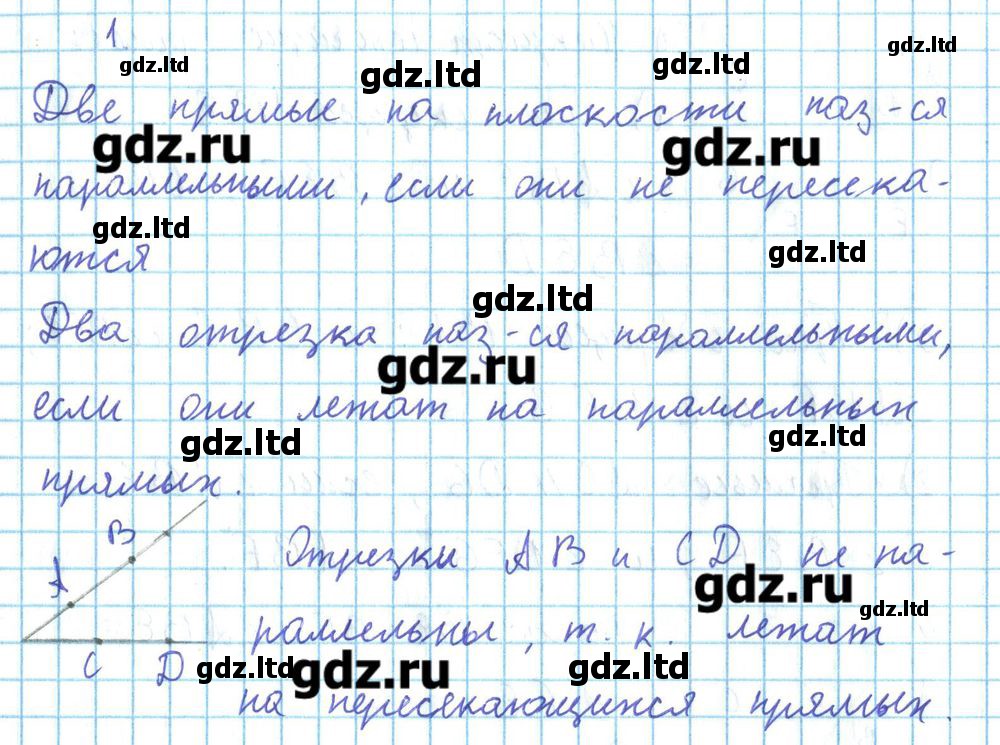 1.
gdz.ltd gdz.ltd gdz.ltd gdz.ltd
Две прямые на плоскости наз-ся
gdz.ru gdz.ru
параллельными, если они не пересека-
gdz.ltd gdz.ltd
ются
gdz.ltd
Два отрезка наз-ся параллельными,
gdz.ru
если они лежат на параллельных
gdz.ltd gdz.ltd
прямых.
B Отрезки AB и CD не па-
A gdz.ru gdz.ltd
раллельны, т. к. лежат
C D gdz.ltd gdz.ru gdz.ltd
на пересекающихся прямых.